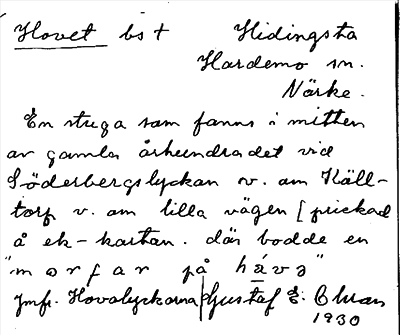 Hovet bs † Hidingsta
Hardemo sn.
Närke.
En stuga som fanns i mitten
av gamla århundradet vid
Söderbergslyckan v. om Käll-
torp v. om lilla vägen [prickad
å ek-kartan. där bodde en
"morfar på hávə"
Jmfr. Hovalyckorna Gustaf E. Ohran
1930